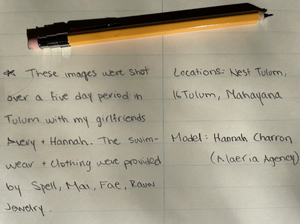 * These images were shot
over a five day period in
Tulum with my girlfriends
Avery + Hannah. The swim-
wear + clothing were provided
by Spell, Mai, Fae, Raven
Jewelry.
Locations: Nest Tulum,
16Tulum, Mahayana
Model: Hannah Charron
(Maeria Agency)